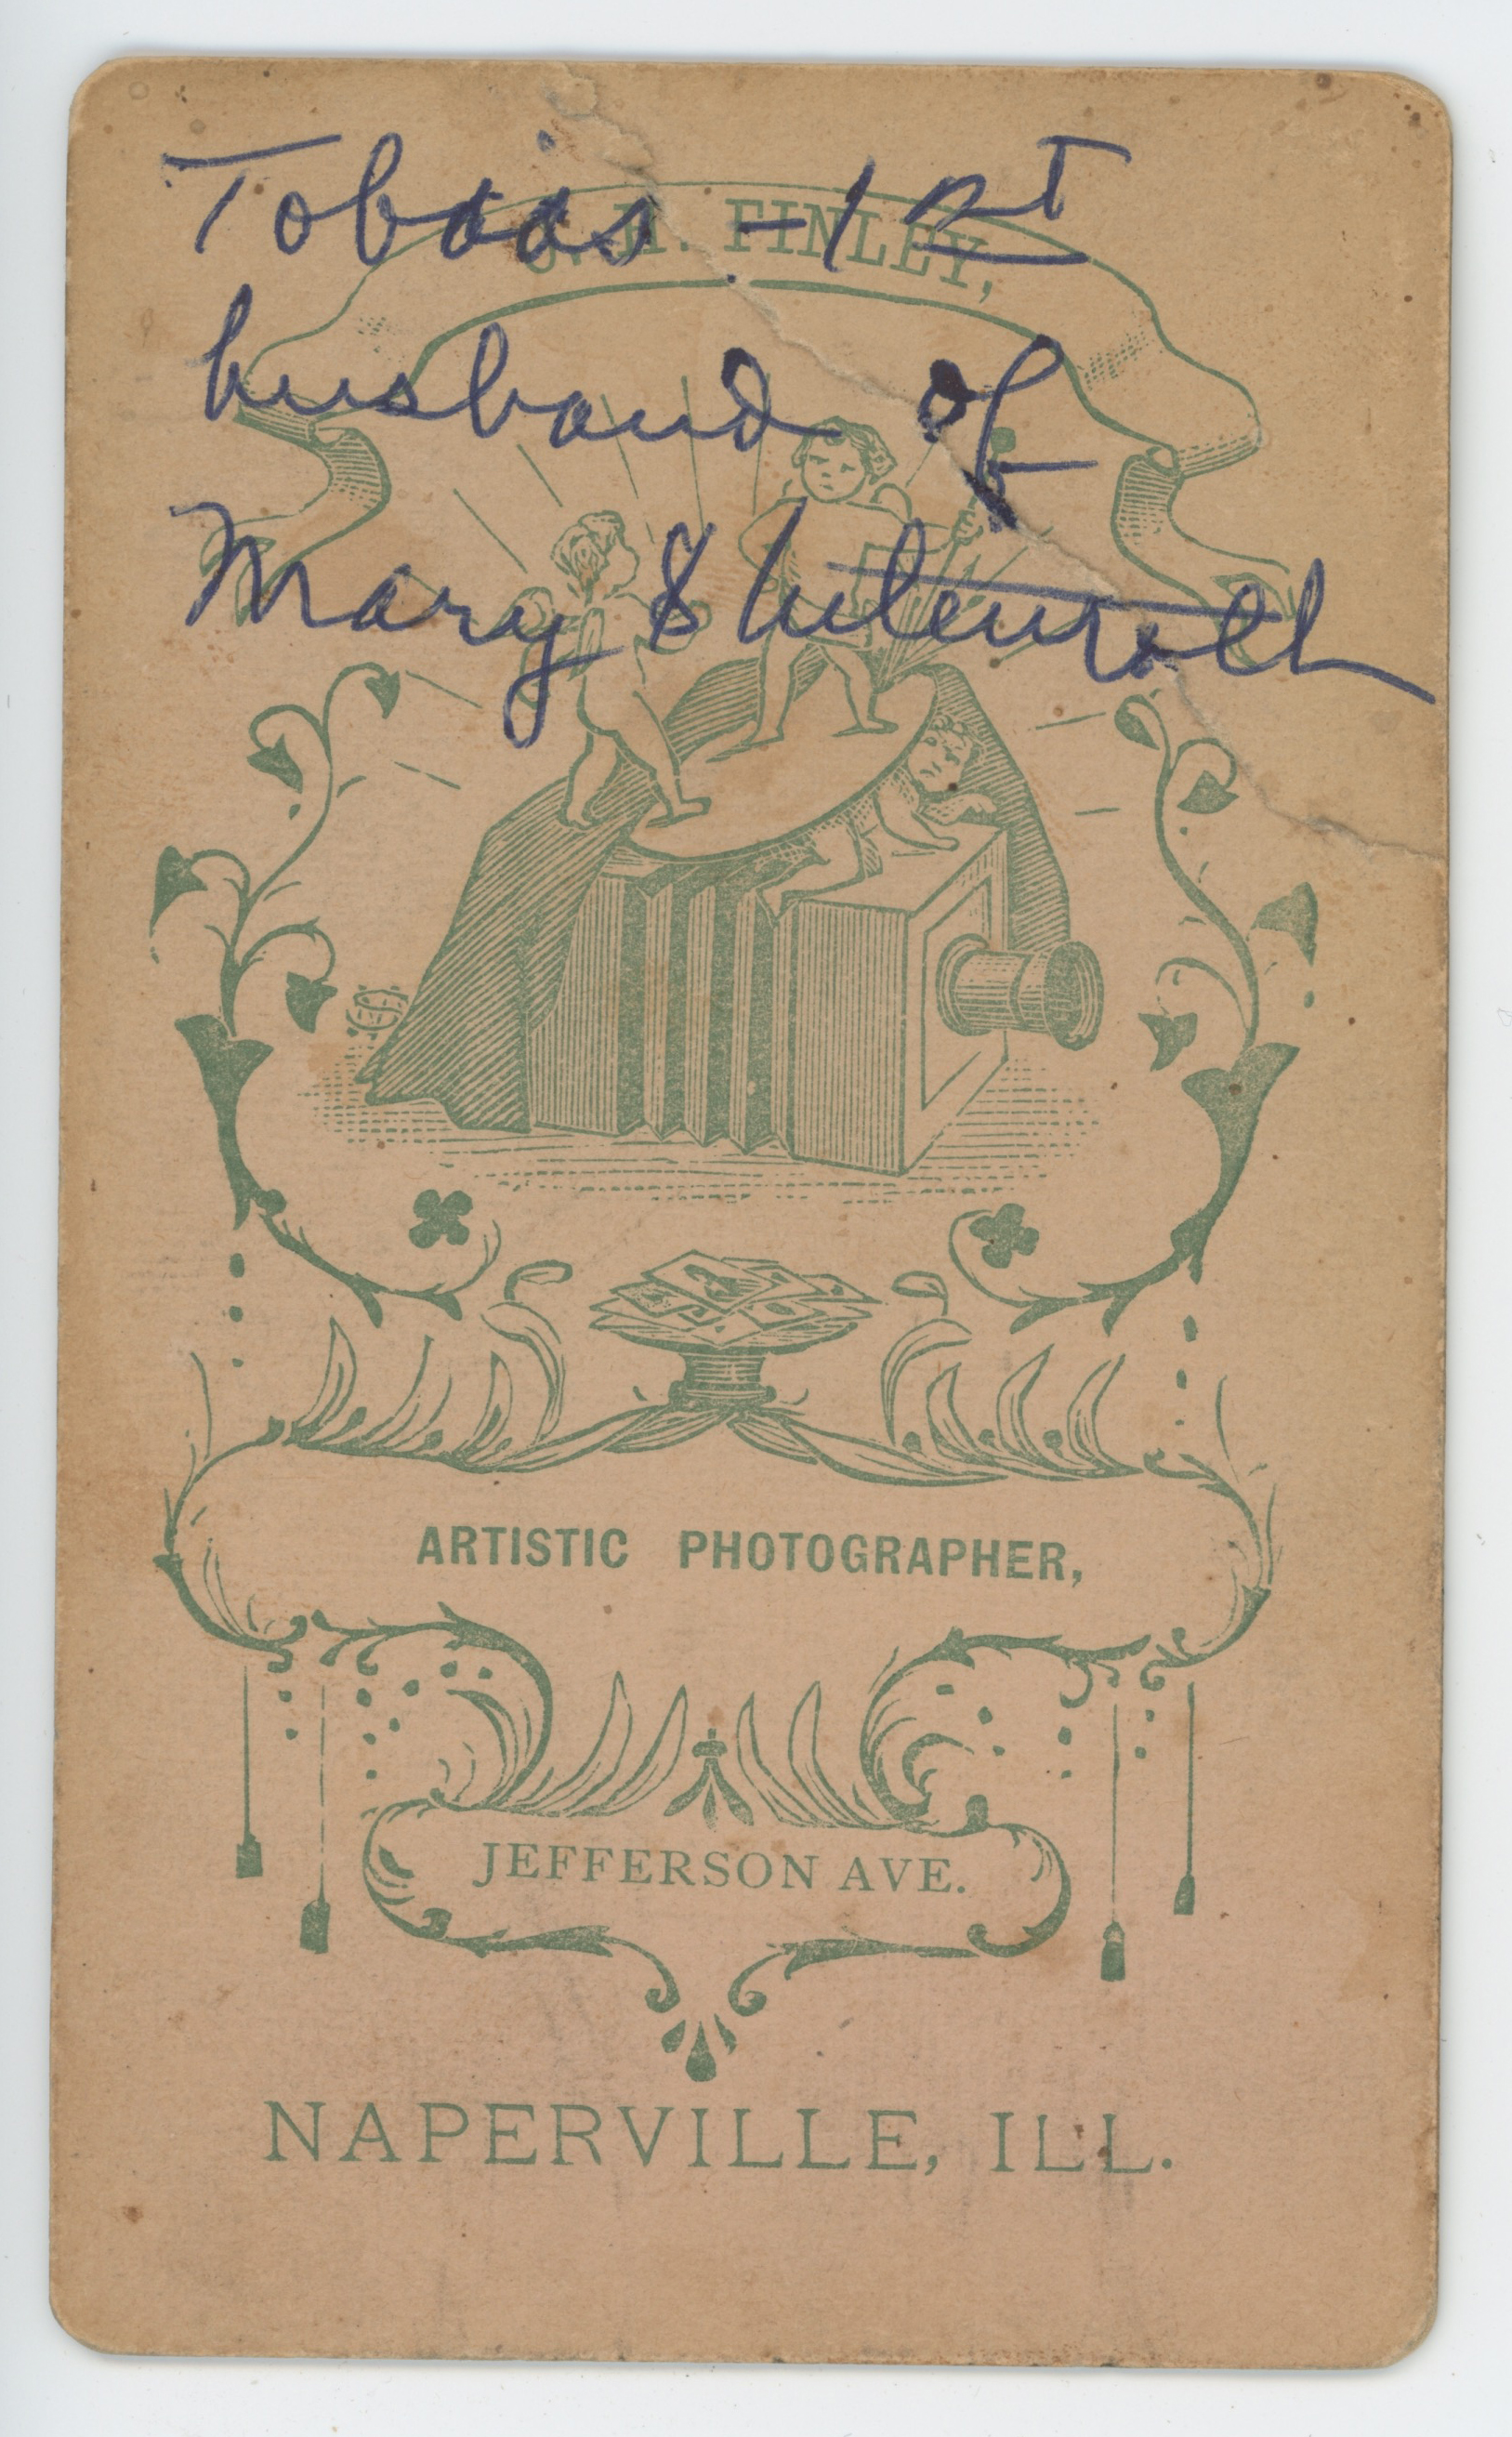 Tobias - 1st
husband of
Mary
H. FINLEY,
ARTISTIC PHOTOGRAPHER,
JEFFERSON AVE.
NAPERVILLE, ILL.